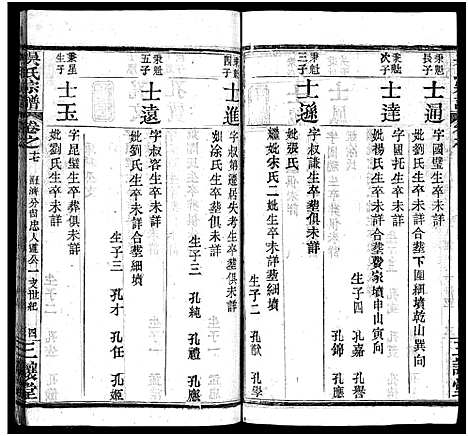 秉魁長子 士通 字國璧生卒未詳
妣劉氏生卒未詳合塟下圍細墳乾山巽向
秉魁次子 士達 字國托生卒未詳
妣楊氏生卒未詳合塟費家墳申山寅向
生子四 孔嘉 孔譽 孔錦 孔應
秉魁三子 士遜 字叔謙生卒塟俱未詳
妣張氏
妣宋氏二妣生卒未詳塟細墳
生子二 孔猷 孔學
秉魁四子 士進 字叔第遷居失考生卒塟俱未詳
妣涂氏生卒塟俱未詳
生子三 孔純 孔禮 孔應
秉魁五子 士遠 字叔容生卒未詳
妣劉氏生卒未詳合塟細墳
生子三 孔才 孔任 孔姬
秉星生子 士玉 字昆璧生卒塟俱未詳
妣劉氏生卒未詳
吳氏宗譜 卷之七 經濟分甾忠人運公一支世紀 四 三讓堂